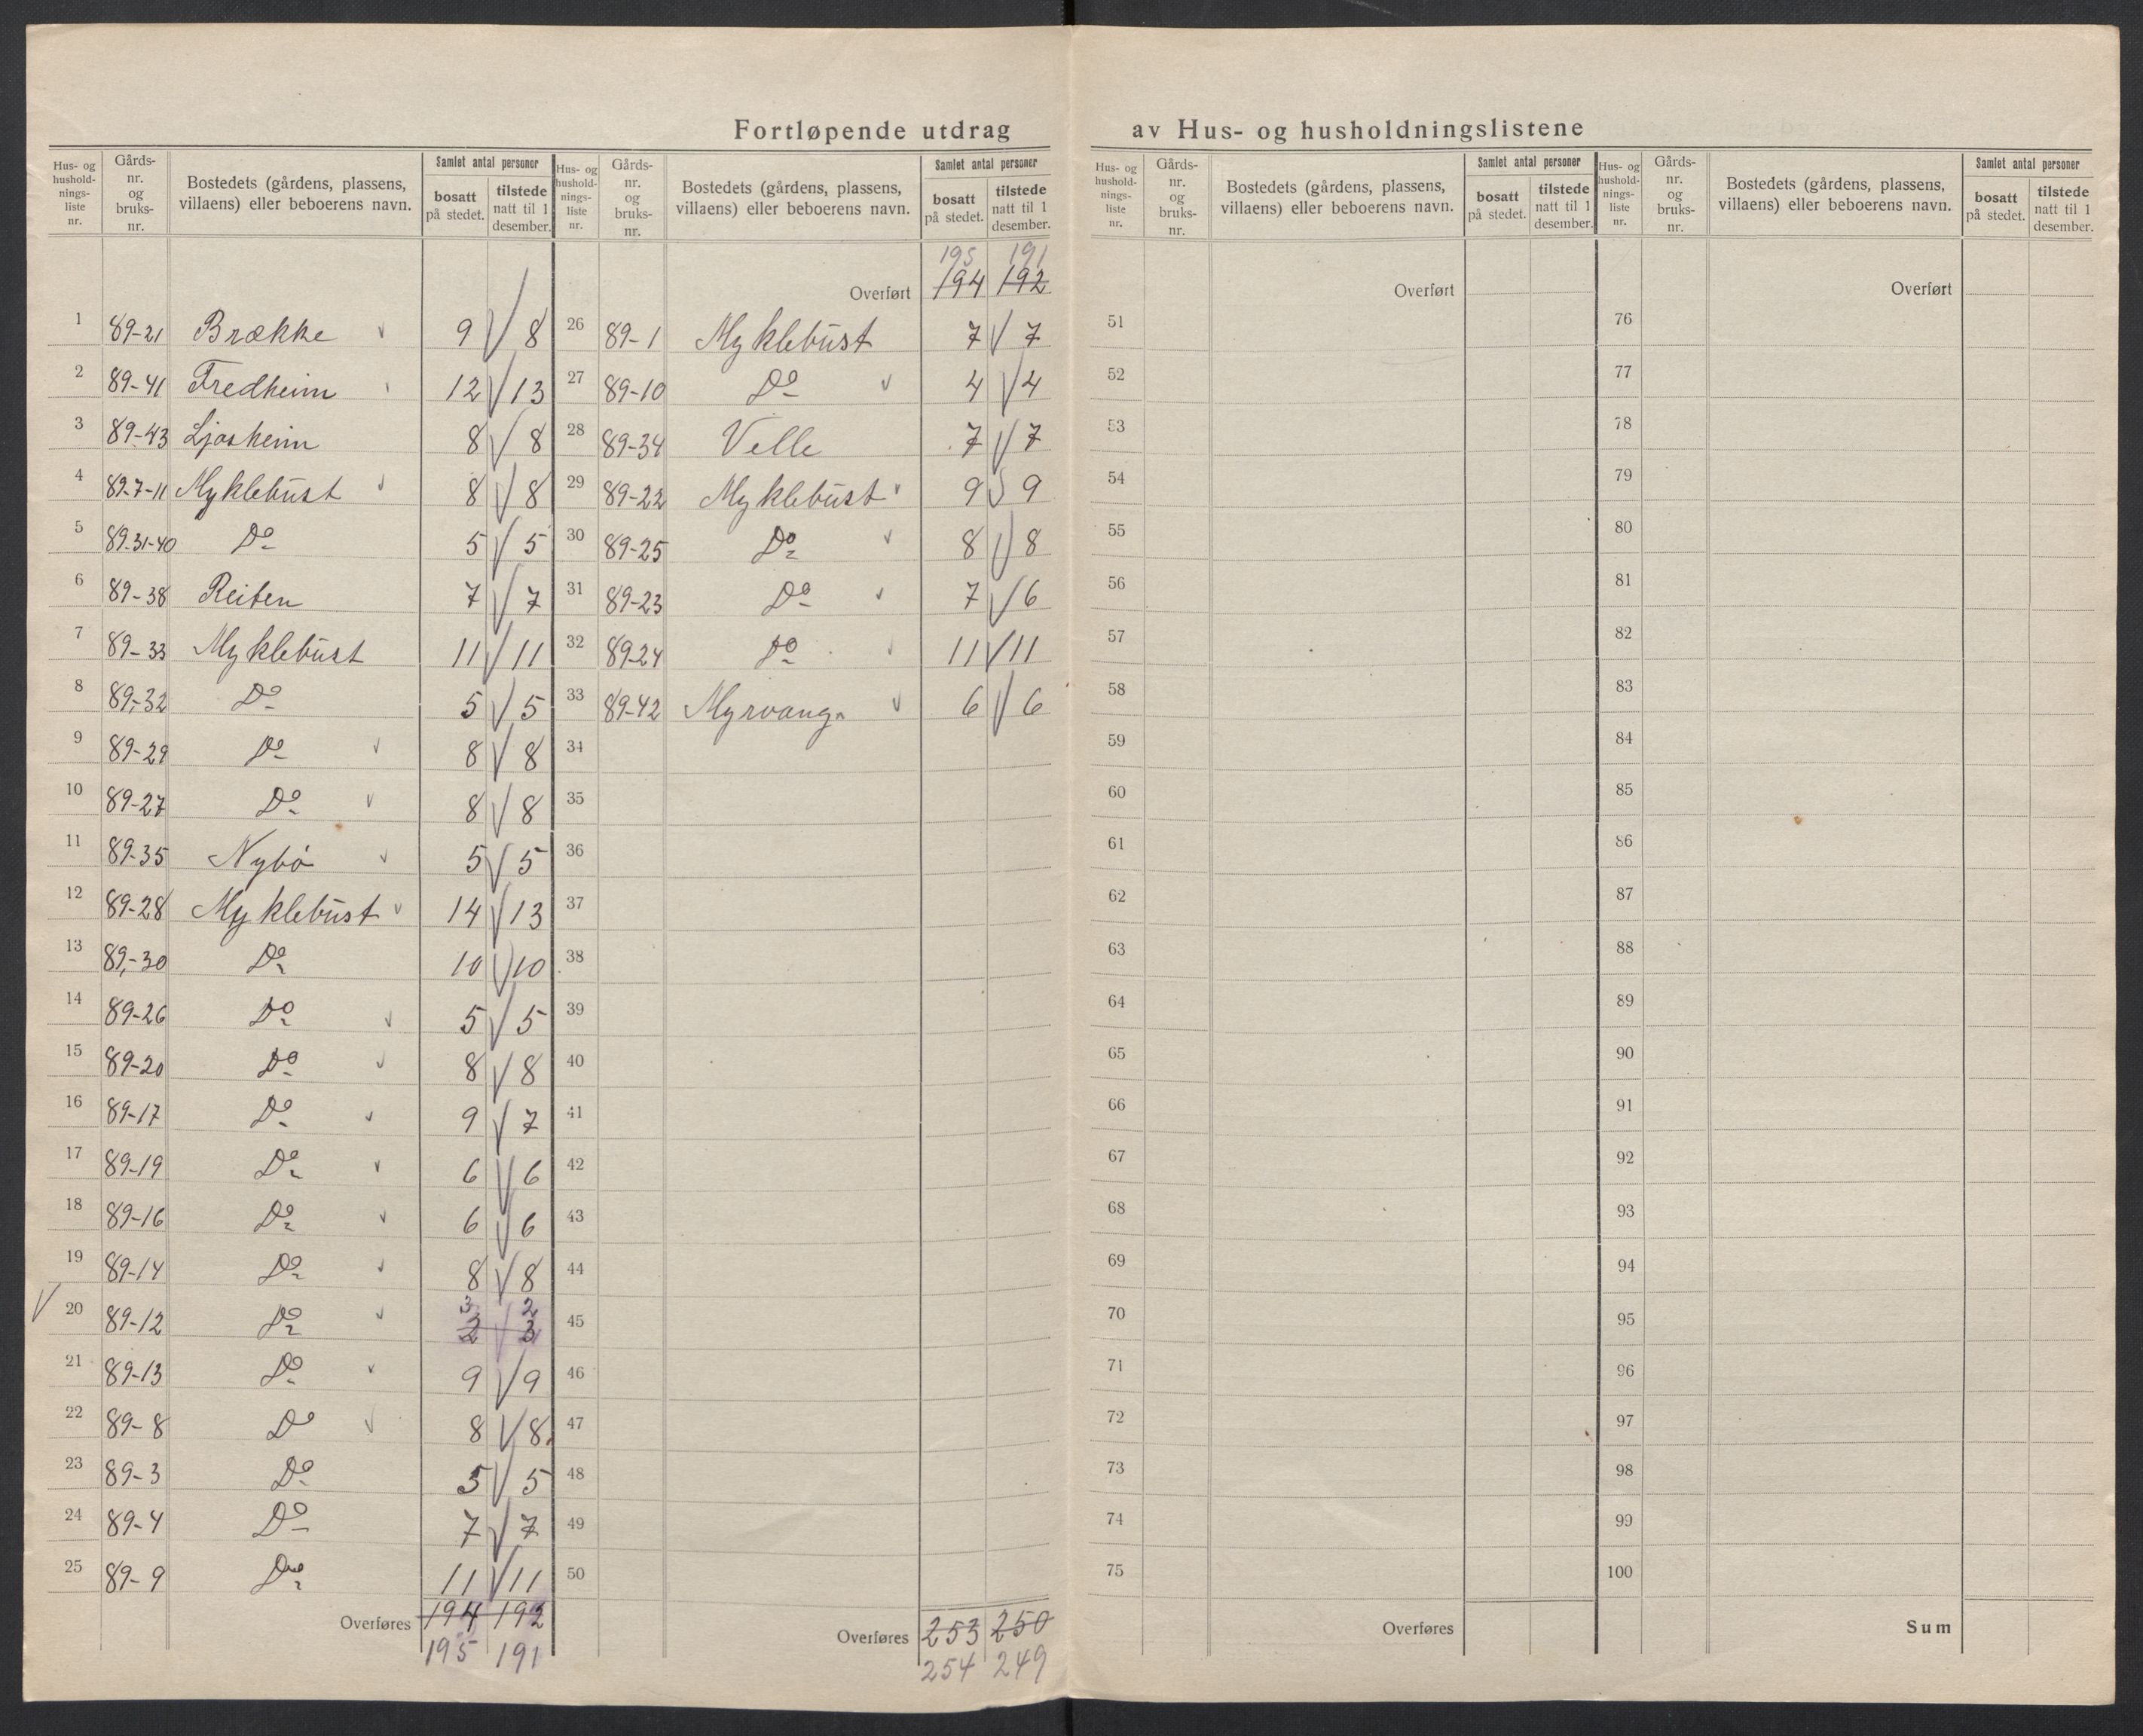 Fortløpende utdrag av Hus- og husholdningslistene
Hus- og hushold-nings-liste nr. | Gårds-nr. og bruks-nr. | Bostedets (gårdens, plassens, villaens) eller beboerens navn. | Samlet antal personer | bosatt på stedet. | tilstede natt til 1 desember.
1 89-21 Brække 9 8
2 89-41 Fredheim 12 13
3 89-43 Ljosheim 8 8
4 89-7-11 Myklebust 8 8
5 89-31-40 Do 5 5
6 89-38 Reiten 7 7
7 89-33 Myklebust 11 11
8 89-32 Do 5 5
9 89-29 Do 8 8
10 89-27 Do 8 8
11 89-35 Nybö 5 5
12 89-28 Myklebust 14 13
13 89-30 Do 10 10
14 89-26 Do 5 5
15 89-20 Do 8 8
16 89-17 Do 9 7
17 89-19 Do 6 6
18 89-16 Do 6 6
19 89-14 Do 8 8
3 2
20 89-12 Do 2 3
21 89-13 Do 9 9
22 89-8 Do 8 8
23 89-3 Do 5 5
24 89-4 Do 7 7
25 89-9 Do 11 11
Overføres 194 192
195 191
Hus- og hushold-nings-liste nr. | Gårds-nr. og bruks-nr. | Bostedets (gårdens, plassens, villaens) eller beboerens navn. | Samlet antal personer | bosatt på stedet. | tilstede natt til 1 desember.
195 191
Overført 194 192
26 89-1 Myklebust 7 7
27 89-10 Do 4 4
28 89-34 Velle 7 7
29 89-22 Myklebust 9 9
30 89-25 Do 8 8
31 89-23 Do 7 6
32 89-24 Do 11 11
33 89-42 Myrvang 6 6
34
35
36
37
38
39
40
41
42
43
44
45
46
47
48
49
50
Overføres 253 250
254 249
Hus- og hushold-nings-liste nr. | Gårds-nr. og bruks-nr. | Bostedets (gårdens, plassens, villaens) eller beboerens navn. | Samlet antal personer | bosatt på stedet. | tilstede natt til 1 desember.
Overført
51
52
53
54
55
56
57
58
59
60
61
62
63
64
65
66
67
68
69
70
71
72
73
74
75
Overføres
Hus- og hushold-nings-liste nr. | Gårds-nr. og bruks-nr. | Bostedets (gårdens, plassens, villaens) eller beboerens navn. | Samlet antal personer | bosatt på stedet. | tilstede natt til 1 desember.
Overført
76
77
78
79
80
81
82
83
84
85
86
87
88
89
90
91
92
93
94
95
96
97
98
99
100
Sum